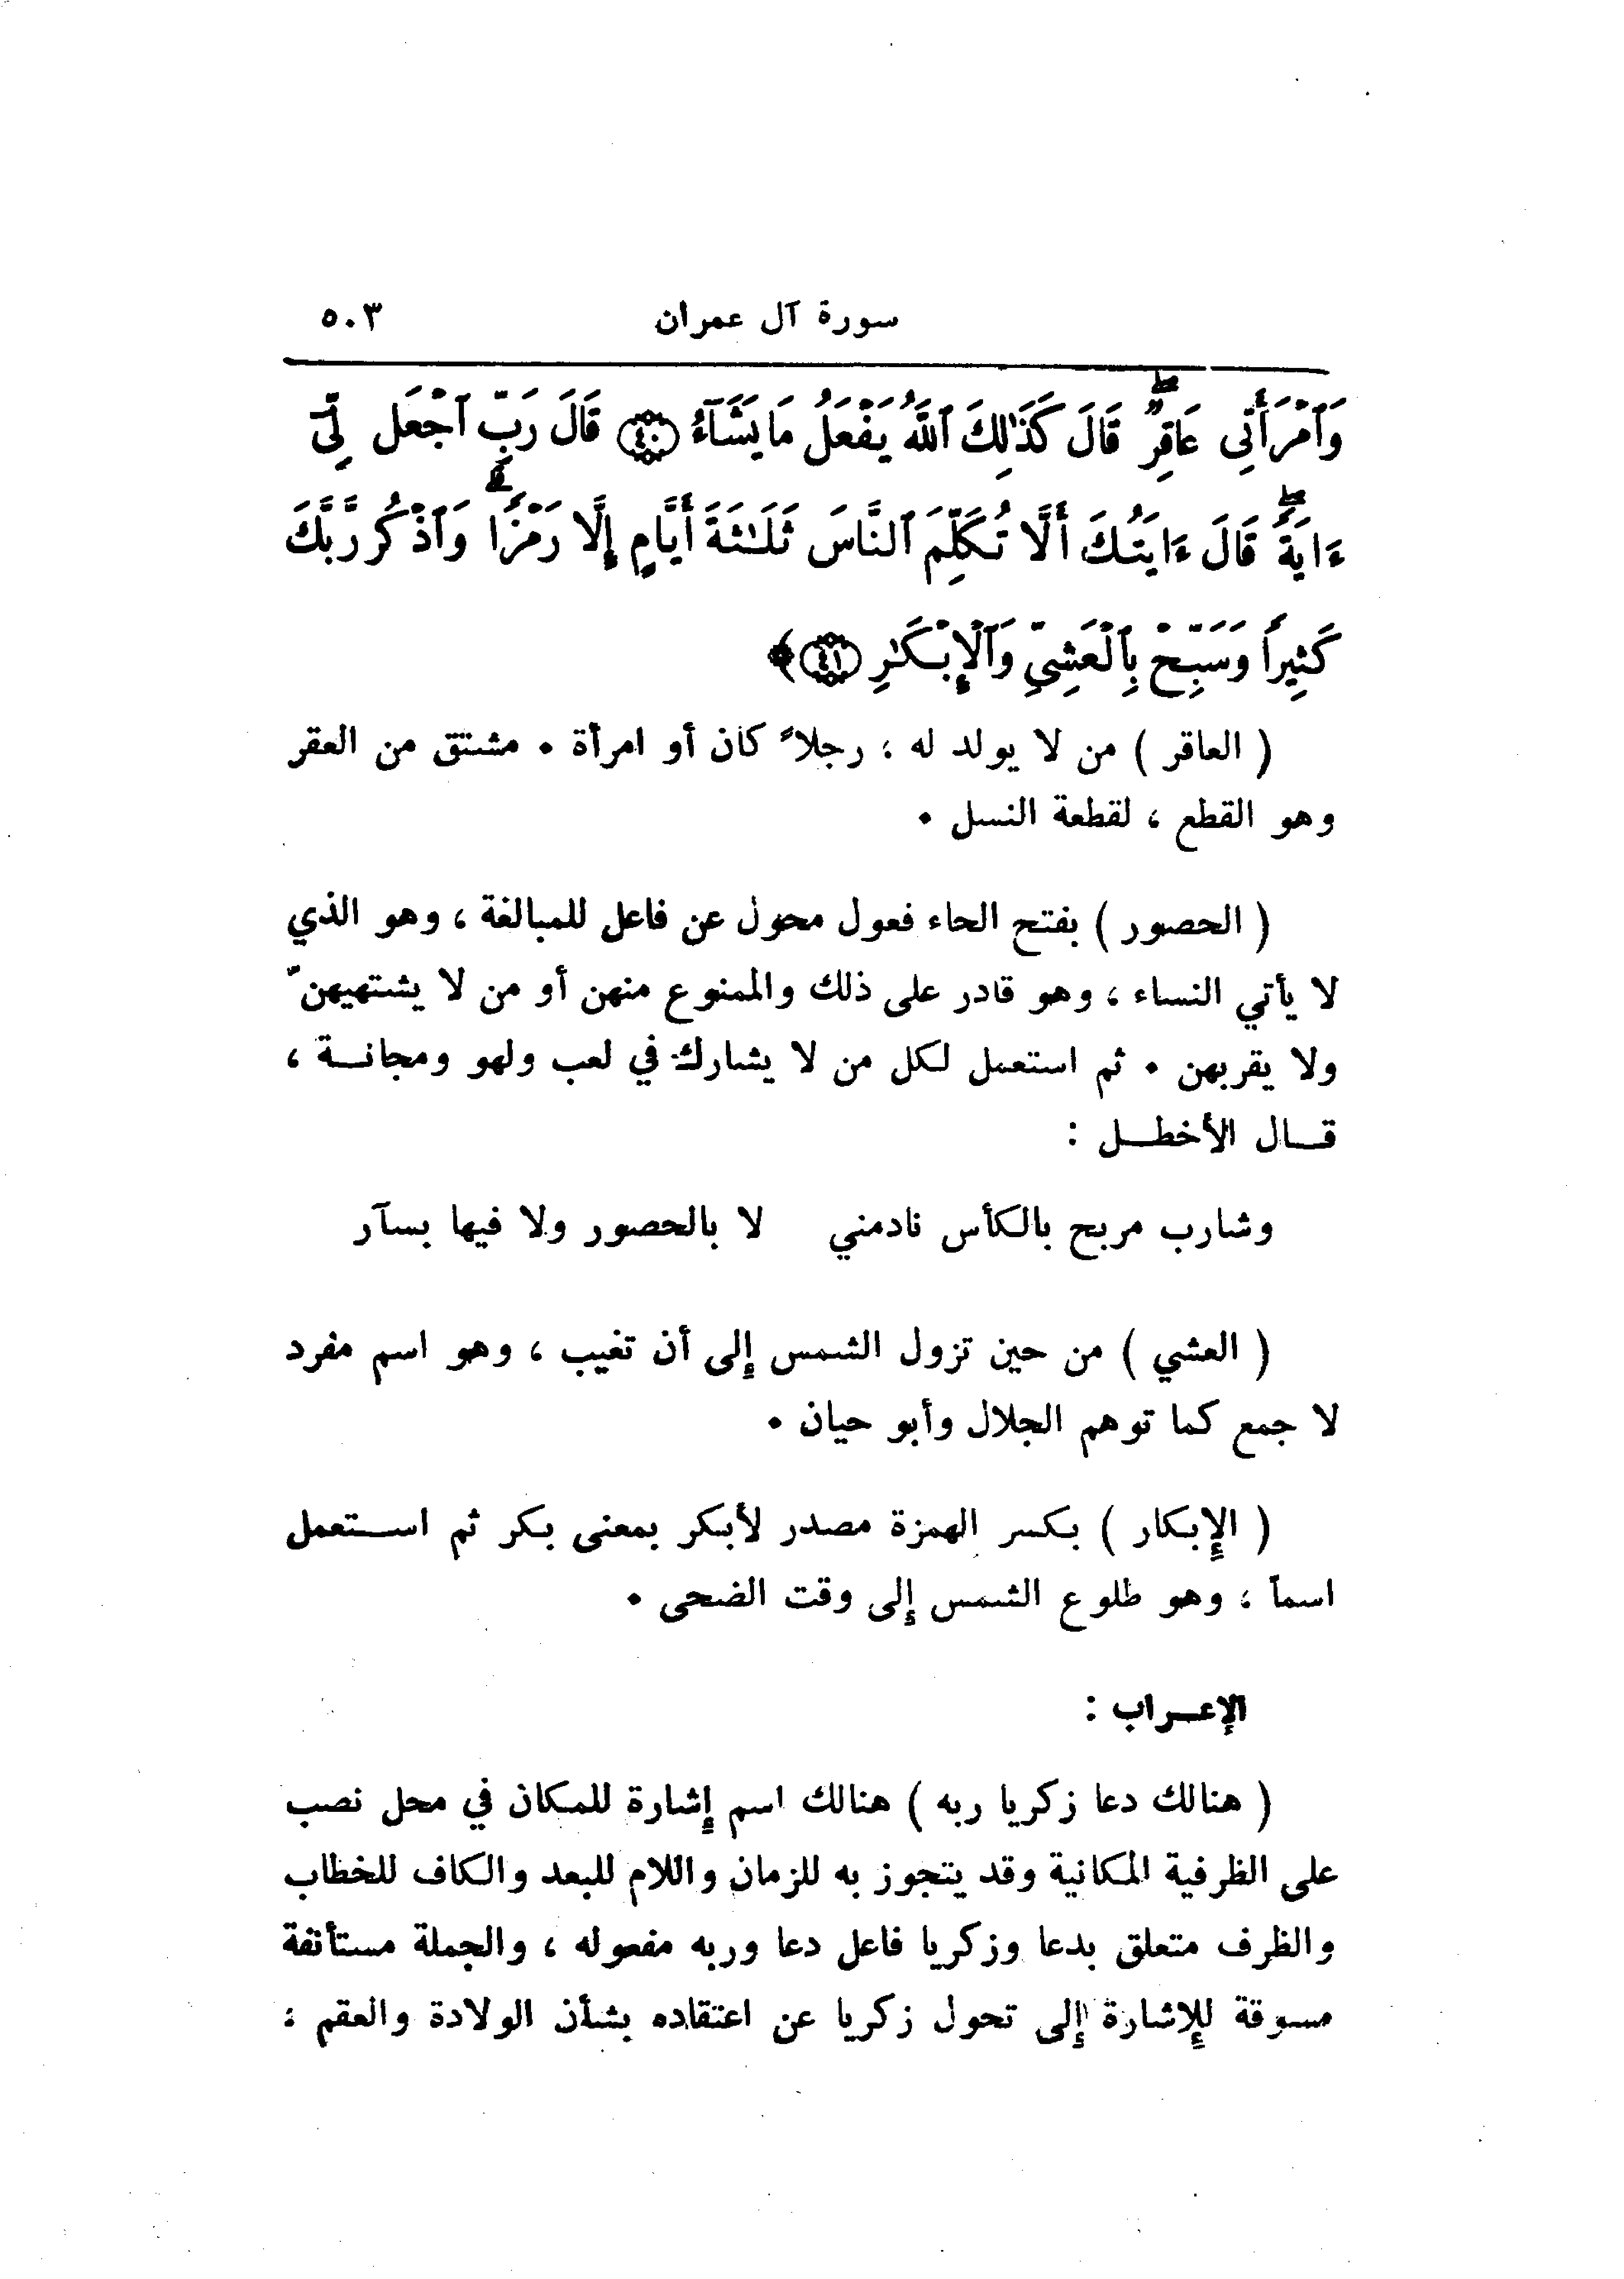 سورة آل عمران ٥٠٣
وَٱمْرَأَتِى عَاقِرٌۖ قَالَ كَذَٰلِكَ ٱللَّهُ يَفْعَلُ مَا يَشَآءُ ﴿٤٠﴾ قَالَ رَبِّ ٱجْعَل لِّىٓ
ءَايَةًۖ قَالَ ءَايَتُكَ أَلَّا تُكَلِّمَ ٱلنَّاسَ ثَلَٰثَةَ أَيَّامٍ إِلَّا رَمْزًاۗ وَٱذْكُر رَّبَّكَ
كَثِيرًا وَسَبِّحْ بِٱلْعَشِىِّ وَٱلْإِبْكَٰرِ ﴿٤١﴾ ﴾
( العاقر ) من لا يولد له ، رجلاً كان أو امرأة • مشتق من العقر
وهو القطع ، لقطعة النسل •
( الحصور ) بفتح الحاء فعول محول عن فاعل للمبالغة ، وهو الذي
لا يأتي النساء ، وهو قادر على ذلك والممنوع منهن أو من لا يشتهيهنّ
ولا يقربهن • ثم استعمل لكل من لا يشارك في لعب ولهو ومجانــة ،
قــال الأخطــل :
وشارب مربح بالكأس نادمني لا بالحصور ولا فيها بسآر
( العشي ) من حين تزول الشمس إلى أن تغيب ، وهو اسم مفرد
لا جمع كما توهم الجلال وأبو حيان •
( الإبكار ) بكسر الهمزة مصدر لأبكر بمعنى بكر ثم اســتعمل
اسماً ، وهو طلوع الشمس إلى وقت الضحى •
الإعــراب :
( هنالك دعا زكريا ربه ) هنالك اسم إشارة للمكان في محل نصب
على الظرفية المكانية وقد يتجوز به للزمان واللام للبعد والكاف للخطاب
والظرف متعلق بدعا وزكريا فاعل دعا وربه مفعوله ، والجملة مستأنفة
مسوقة للإشارة إلى تحول زكريا عن اعتقاده بشأن الولادة والعقم ؛